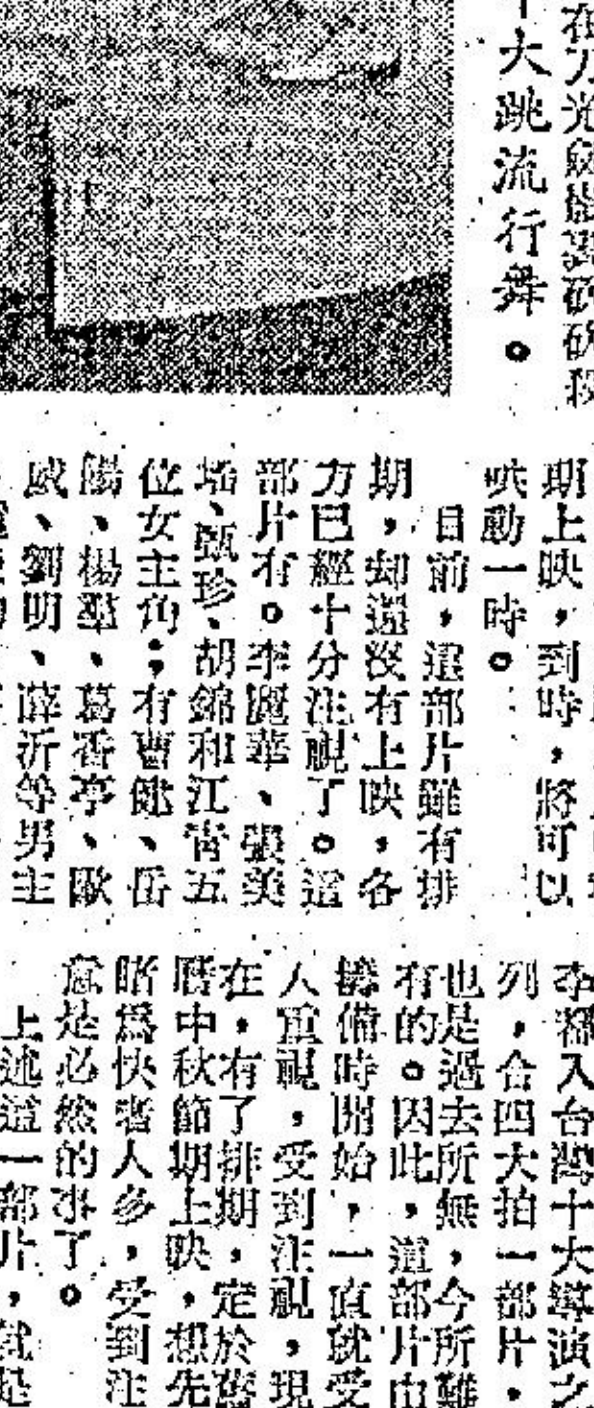 在刀光劍影裏砍砍殺
大跳流行舞。
期上映，到時，將可以
哄動一時。
目前，這部片雖有排
期，却還沒有上映，各
方已經十分注視了。這
部片有。李麗華、張美
瑤、甄珍、胡錦和江青五
位女主角；有曹健、岳
陽、楊羣、葛香亭、歐
威、劉明、薛沂等男主
李都入台灣十大導演之
列，合四大拍一部片，
也是過去所無，今所難
有的。因此，這部片由
籌備時開始，一直就受
人重視，受到注視，現
在，有了排期，定於舊
曆中秋節期上映，想先
睹爲快者人多，受到注
意是必然的事了。
上述這一部片，就是